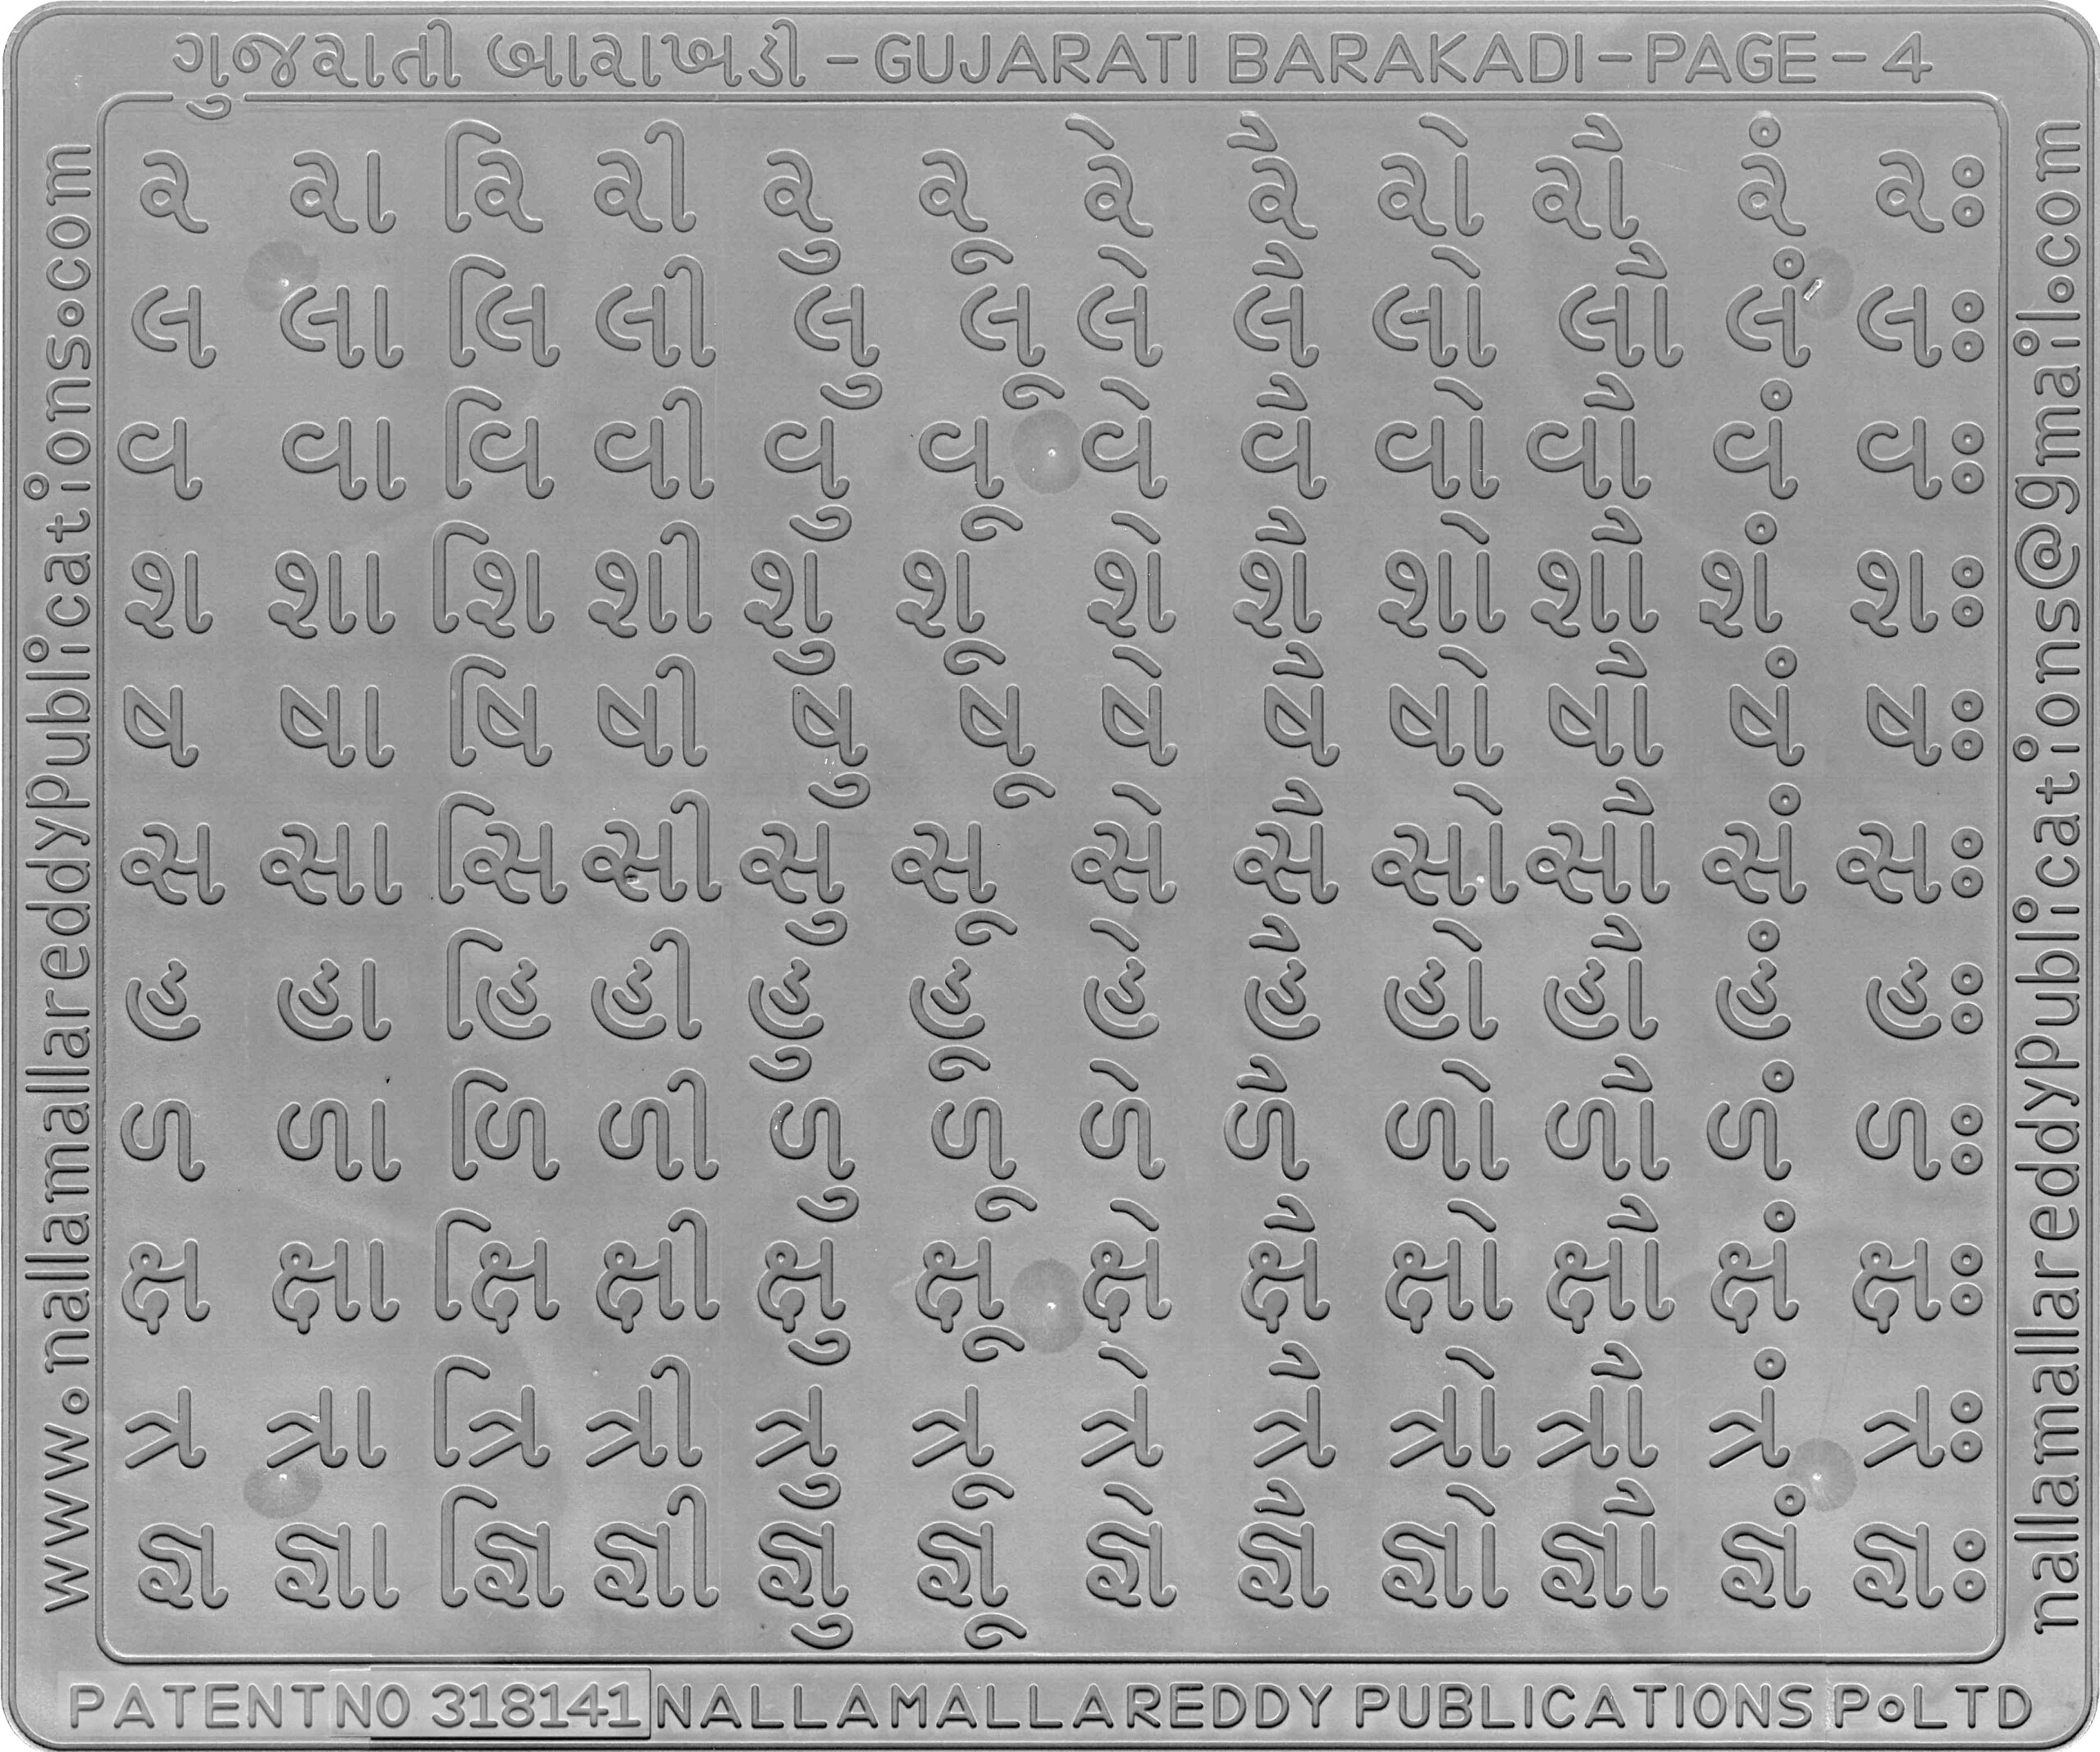 ગુજરાતી બારાખડી - GUJARATI BARAKADI - PAGE - 4
ર રા રિ રી રુ રૂ રે રૈ રો રૌ રં રઃ
લ લા લિ લી લુ લૂ લે લૈ લો લૌ લં લઃ
વ વા વિ વી વુ વૂ વે વૈ વો વૌ વં વઃ
શ શા શિ શી શુ શૂ શે શૈ શો શૌ શં શઃ
ષ ષા ષિ ષી ષુ ષૂ ષે ષૈ ષો ષૌ ષં ષઃ
સ સા સિ સી સુ સૂ સે સૈ સો સૌ સં સઃ
હ હા હિ હી હુ હૂ હે હૈ હો હૌ હં હઃ
ળ ળા ળિ ળી ળુ ળૂ ળે ળૈ ળો ળૌ ળં ળઃ
ક્ષ ક્ષા ક્ષિ ક્ષી ક્ષુ ક્ષૂ ક્ષે ક્ષૈ ક્ષો ક્ષૌ ક્ષં ક્ષઃ
ત્ર ત્રા ત્રિ ત્રી ત્રુ ત્રૂ ત્રે ત્રૈ ત્રો ત્રૌ ત્રં ત્રઃ
જ્ઞ જ્ઞા જ્ઞિ જ્ઞી જ્ઞુ જ્ઞૂ જ્ઞે જ્ઞૈ જ્ઞો જ્ઞૌ જ્ઞં જ્ઞઃ
www.nallamallareddyPublications.com
nallamallareddyPublications@gmail.com
PATENT NO 318141 NALLAMALLAREDDY PUBLICATIONS P.LTD